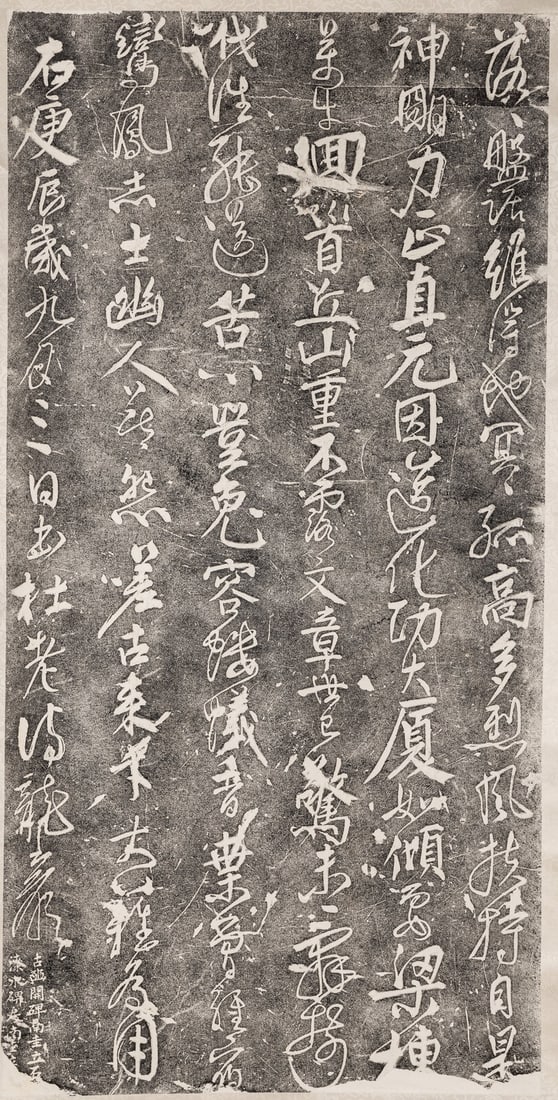 落〻盤踞雖得地冥〻孤高多烈風扶持自是
神眀力正直元因造化功大廈如傾要梁棟
萬牛迴首丘山重不露文章世已驚未辭剪
伐誰能送苦心豈免容螻蟻香葉曾經宿
鸞鳳志士幽人莫怨嗟古來材大難為用
右庚辰歲九月三日書杜老詩龍巖